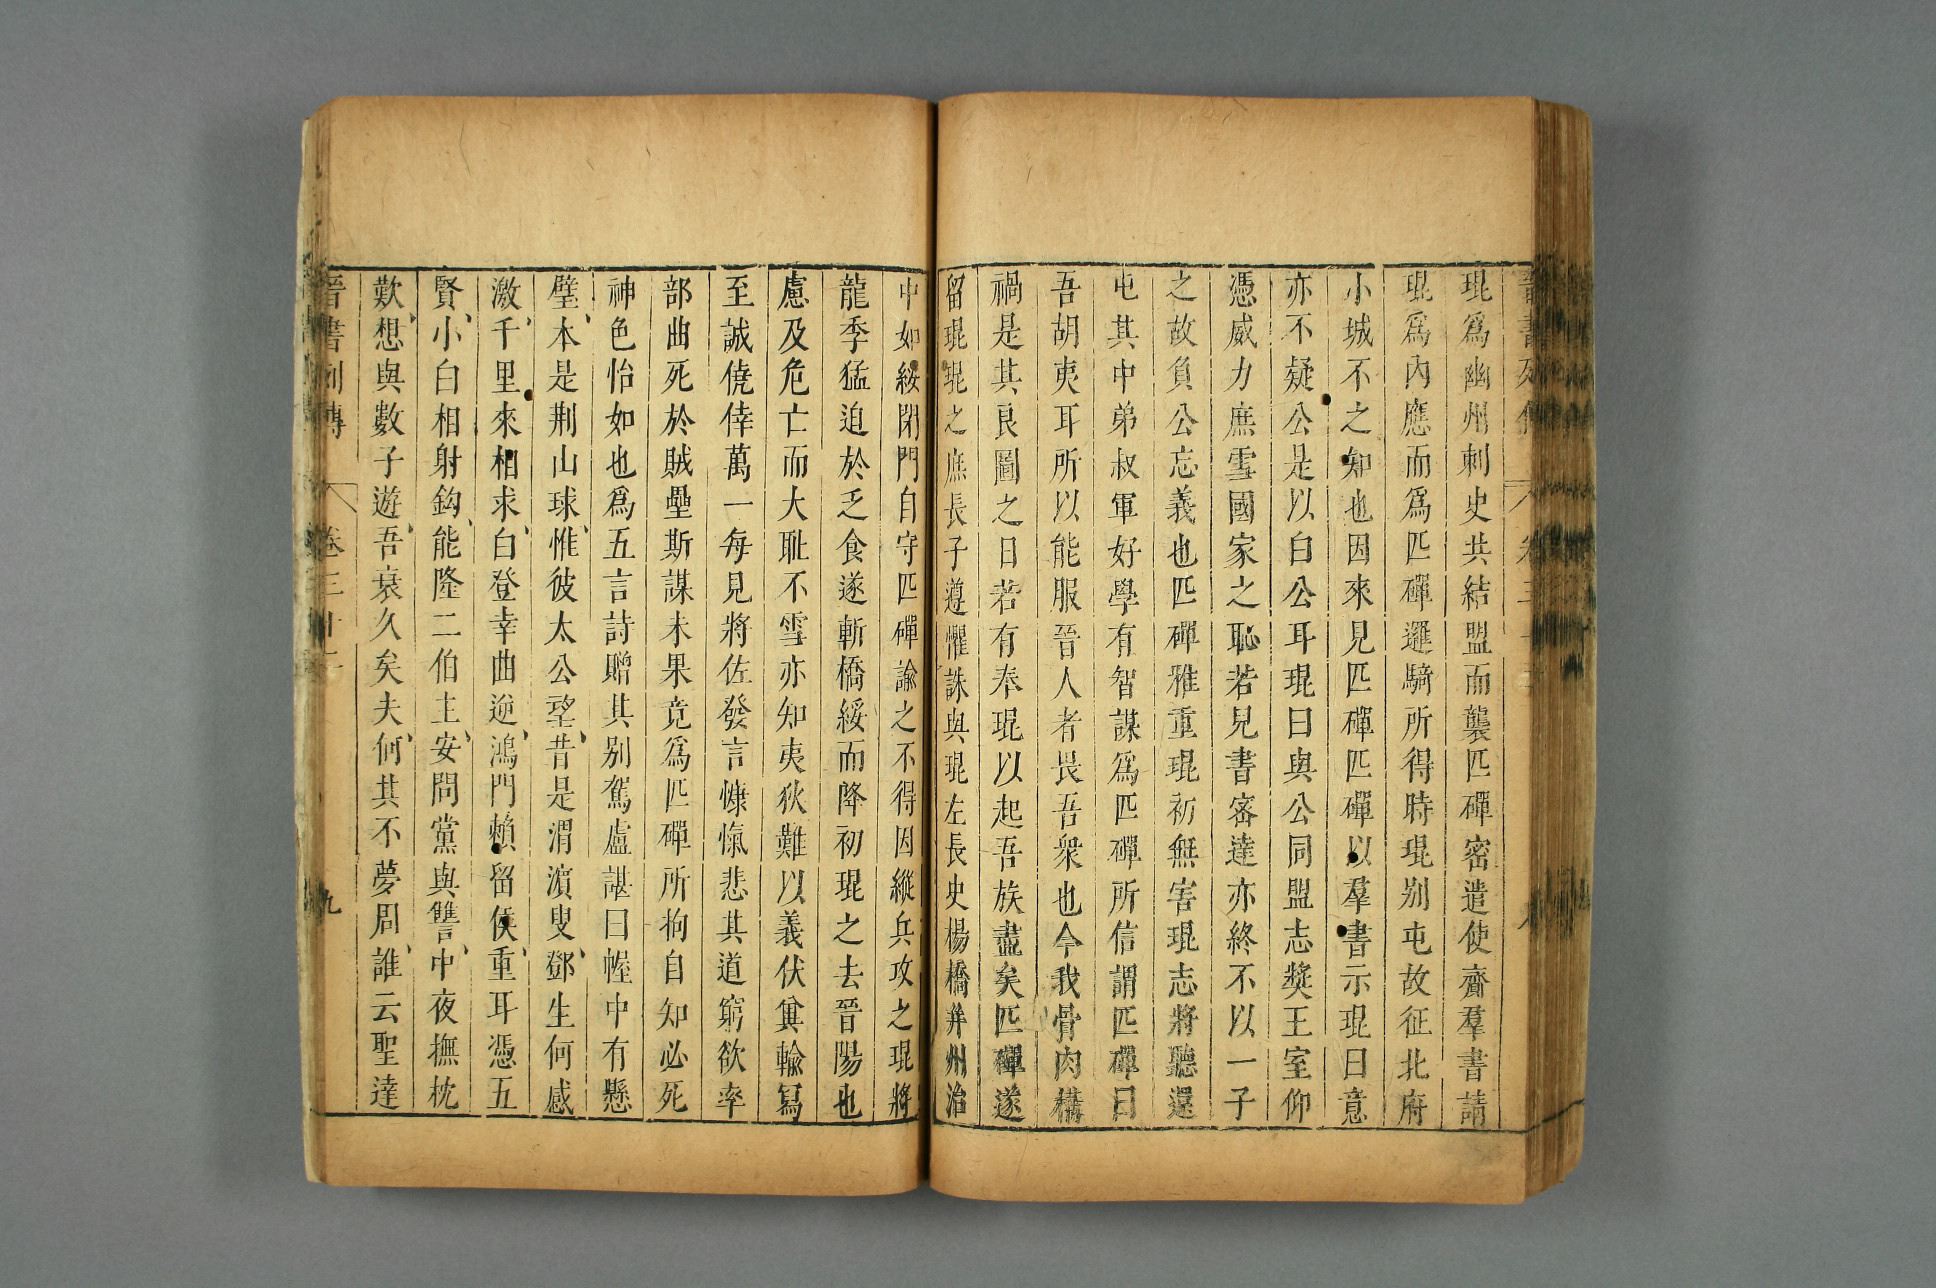 晉書列傳
琨爲幽州刺史共結盟而襲匹磾密遣使齎羣書請
琨爲內應而爲匹磾邏騎所得時琨别屯故征北府
小城不之知也因來見匹磾匹磾以羣書示琨曰意
亦不疑公是以白公耳琨曰與公同盟志奬王室仰
憑威力庶雪國家之恥若兒書密達亦終不以一子
之故負公忘義也匹磾雅重琨初無害琨志將聽還
屯其中弟叔軍好學有智謀爲匹磾所信謂匹磾曰
吾胡夷耳所以能服晉人者畏吾衆也今我骨肉構
禍是其良圖之日若有奉琨以起吾族盡矣匹磾遂
留琨琨之庶長子遵懼誅與琨左長史楊橋并州治
中如綏閉門自守匹磾諭之不得因縱兵攻之琨將
龍季猛迫於乏食遂斬橋綏而降初琨之去晉陽也
慮及危亡而大耻不雪亦知夷狄難以義伏兾輸寫
至誠僥倖萬一每見將佐發言慷慨悲其道窮欲率
部曲死於賊壘斯謀未果竟爲匹磾所拘自知必死
神色怡如也爲五言詩贈其别駕盧諶曰幄中有懸
璧本是荆山球惟彼太公望昔是渭濱叟鄧生何感
激千里來相求白登幸曲逆鴻門賴留侯重耳憑五
賢小白相射鈎能隆二伯主安問黨與讐中夜撫枕
歎想與數子遊吾衰久矣夫何其不夢周誰云聖達
晉書列傳 卷三十二 九